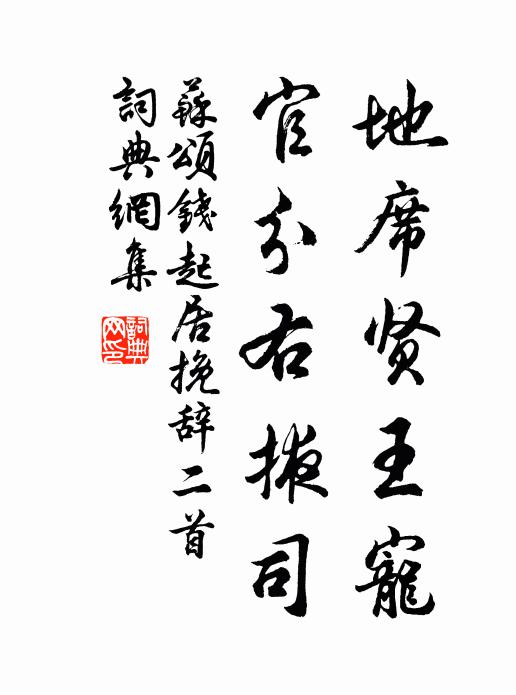 地席贤王寵
官分右掖司
蘇頌錢起居挽辞二首
詞典網集
詞典網印